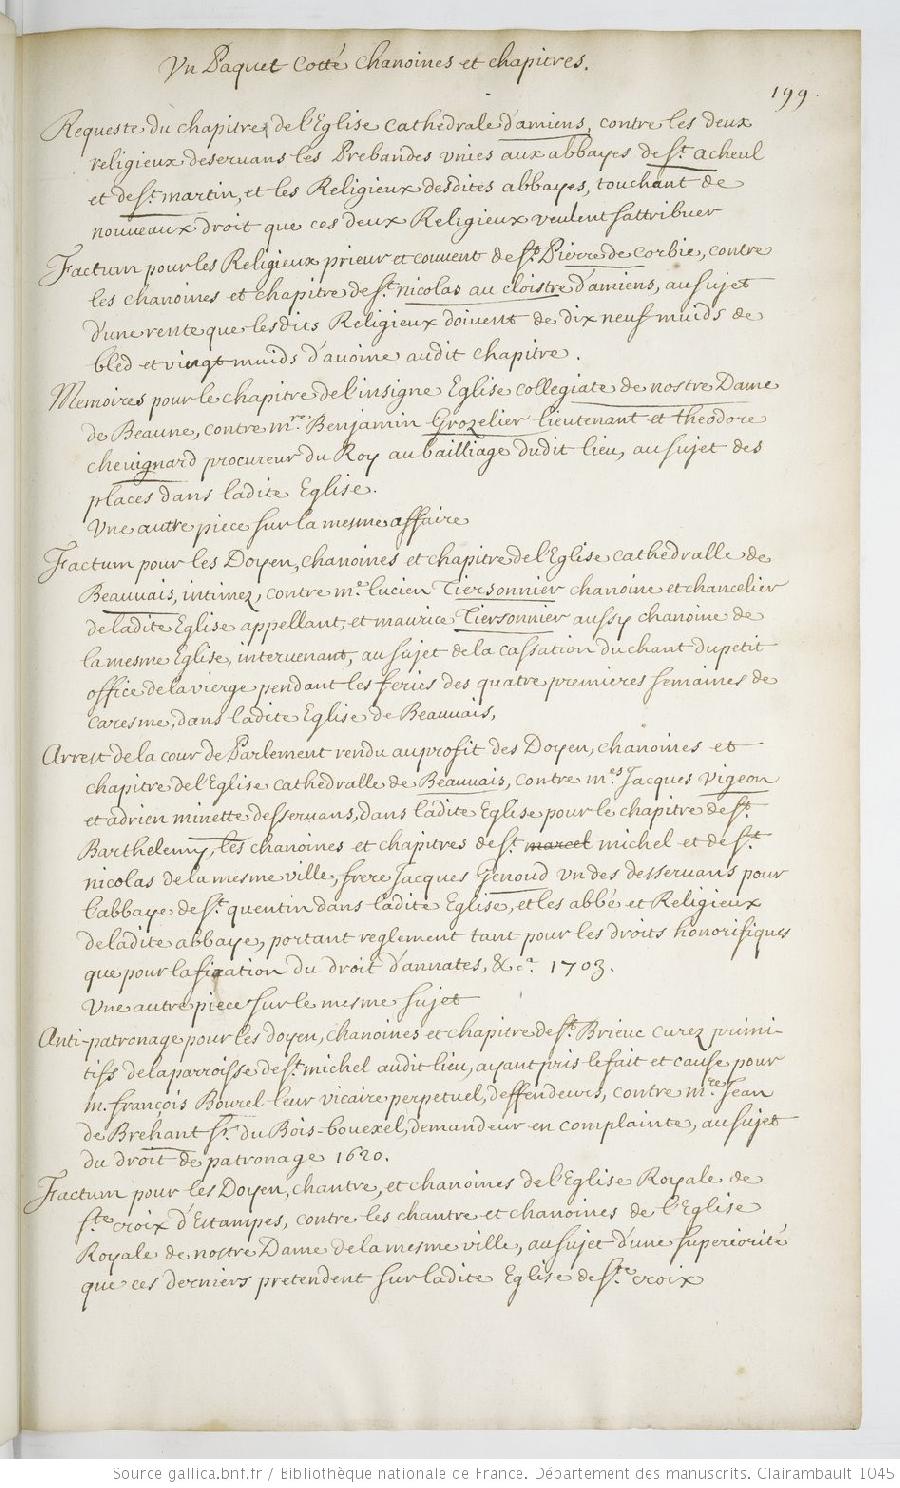 Vn Paquet Cotté Chanoines et chapitres.
199.
Requeste du chapitre de l'Eglise Cathedrale d'amiens, contre les deux
religieux deseruans les Prebandes vnies aux abbayes de St. acheul
et de St. martin, et les Religieux desdites abbayes, touchant de
nouueaux droit que ces deux Religieux veulent s'attribuer
Factum pour les Religieux prieur et couuent de St. Pierre de Corbie, contre
les chanoines et chapitre de St. nicolas au cloistre d'amiens, au sujet
d'une rente que lesdits Religieux doiuent de dix neuf muids de
bled et vingt muids d'auoine audit chapitre.
Memoires pour le chapitre de l'insigne Eglise collegiate de nostre Dame
de Beaune, contre mre. Benjamin Grozelier lieutenant et theodore
cheuignard procureur du Roy au bailliage dudit lieu, au sujet des
places dans ladite Eglise.
Vne autre piece sur la mesme affaire
Factum pour les Doyen, chanoines et chapitre de l'Eglise cathedralle de
Beauuais, intimez, contre me. lucien Tiersonnier chanoine et chancelier
de ladite Eglise appellant, et maurice Tiersonnier aussy chanoine de
la mesme Eglise, interuenant, au sujet de la cassation du chant du petit
office de la vierge pendant les feries des quatre premieres semaines de
Caresme, dans ladite Eglise de Beauuais,
Arrest de la cour de Parlement rendu au profit des Doyen, chanoines et
chapitre de l'Eglise cathedralle de Beauuais, contre mes Jacques Vigeon
et adrien minette desseruans, dans ladite Eglise pour le chapitre de St.
Barthelemy, les chanoines et chapitres de St. marcel michel et de St
nicolas de la mesme ville, frere Jacques Genoud vn des desseruans pour
l'abbaye de St. quentin dans ladite Eglise, et les abbé et Religieux
de ladite abbaye, portant reglement tant pour les droits honorifiques
que pour la fixation du droit d'annates, &ca. 1703.
Vne autre piece sur le mesme sujet
Anti-patronage pour les doyen, chanoines et chapitre de St. Brieuc curez primi-
tifs de la parroisse de St. michel audit lieu, ayant pris le fait et cause pour
m. françois Bourel leur vicaire perpetuel, deffendeurs, contre mre Jean
de Brehant Sr. du Bois-bouexel, demandeur en complainte, au sujet
du droit de patronage 1620.
Factum pour les Doyen, chantre, et chanoines de l'Eglise Royale de
Ste croix d'Estampes, contre les chantre et chanoines de l'Eglise
Royale de nostre Dame de la mesme ville, au sujet d'une superiorité
que ces derniers pretendent sur ladite Eglise de Ste croix
Source gallica.bnf.fr / Bibliothèque nationale de France. Département des manuscrits. Clairambault 1045